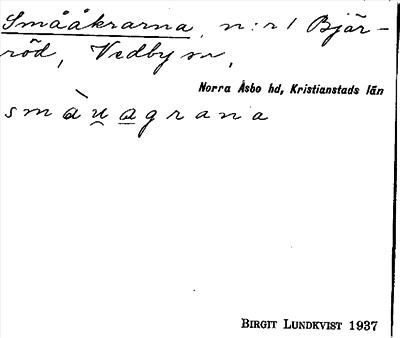 Smååkrarna, n:r 1 Bjär-
röd, Vedby sn,
Norra Åsbo hd, Kristianstads län
smàu̯a̲grana
BIRGIT LUNDKVIST 1937